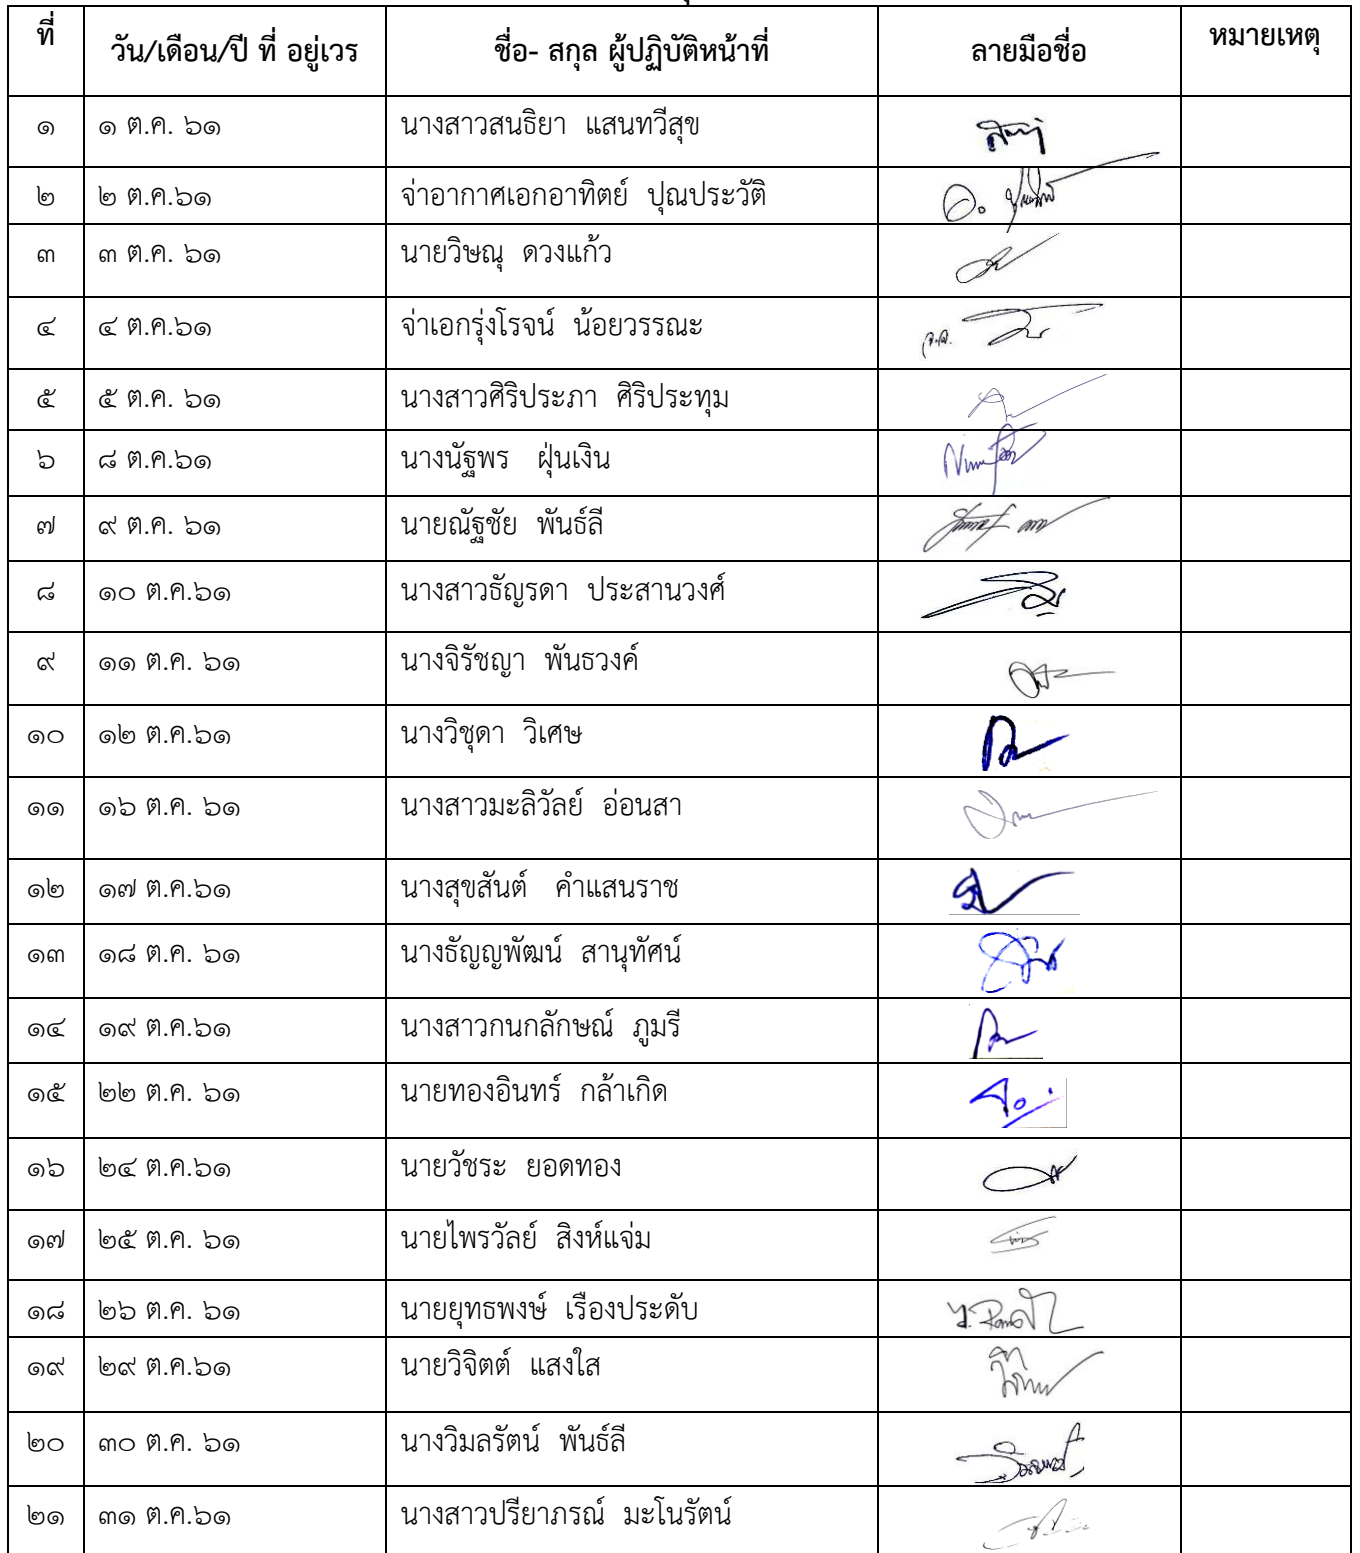 ที่ วัน/เดือน/ปี ที่ อยู่เวร ชื่อ- สกุล ผู้ปฏิบัติหน้าที่ ลายมือชื่อ หมายเหตุ
๑ ๑ ต.ค. ๖๑ นางสาวสนธิยา แสนทวีสุข
๒ ๒ ต.ค.๖๑ จ่าอากาศเอกอาทิตย์ ปุณประวัติ
๓ ๓ ต.ค. ๖๑ นายวิษณุ ดวงแก้ว
๔ ๔ ต.ค.๖๑ จ่าเอกรุ่งโรจน์ น้อยวรรณะ
๕ ๕ ต.ค. ๖๑ นางสาวศิริประภา ศิริประทุม
๖ ๘ ต.ค.๖๑ นางนัฐพร ฝุ่นเงิน
๗ ๙ ต.ค. ๖๑ นายณัฐชัย พันธ์ลี
๘ ๑๐ ต.ค.๖๑ นางสาวธัญรดา ประสานวงศ์
๙ ๑๑ ต.ค. ๖๑ นางจิรัชญา พันธวงค์
๑๐ ๑๒ ต.ค.๖๑ นางวิชุดา วิเศษ
๑๑ ๑๖ ต.ค. ๖๑ นางสาวมะลิวัลย์ อ่อนสา
๑๒ ๑๗ ต.ค.๖๑ นางสุขสันต์ คำแสนราช
๑๓ ๑๘ ต.ค. ๖๑ นางธัญญพัฒน์ สานุทัศน์
๑๔ ๑๙ ต.ค.๖๑ นางสาวกนกลักษณ์ ภูมรี
๑๕ ๒๒ ต.ค. ๖๑ นายทองอินทร์ กล้าเกิด
๑๖ ๒๔ ต.ค.๖๑ นายวัชระ ยอดทอง
๑๗ ๒๕ ต.ค. ๖๑ นายไพรวัลย์ สิงห์แจ่ม
๑๘ ๒๖ ต.ค. ๖๑ นายยุทธพงษ์ เรืองประดับ
๑๙ ๒๙ ต.ค.๖๑ นายวิจิตต์ แสงใส
๒๐ ๓๐ ต.ค. ๖๑ นางวิมลรัตน์ พันธ์ลี
๒๑ ๓๑ ต.ค.๖๑ นางสาวปรียาภรณ์ มะโนรัตน์